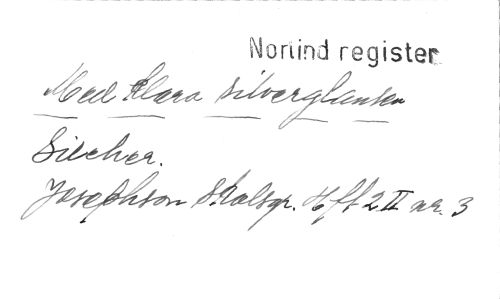 Norlind register
Med klara silverglansen
Silcher.
Josephson Skolsgr. Hft 2 II nr. 3